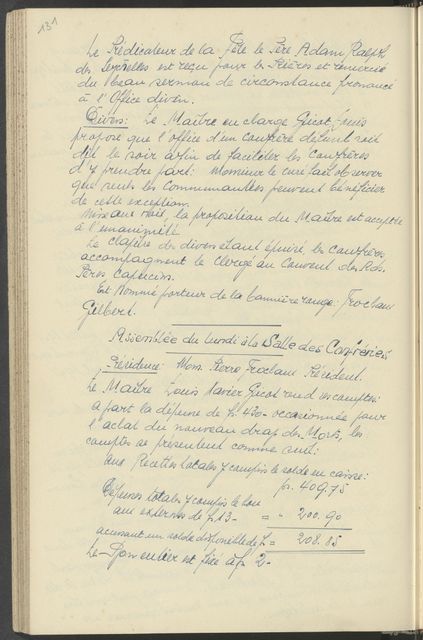 131
Le Prédicateur de la fête le Père Adam Ralph
des Seychelles est reçu pour les Prières et remercié
du beau sermon de circonstance prononcé
à l'Office divin.
Divers: Le Maître en charge Gicot Louis
propose que l'office d'un confrère défunt soit
dit le soir afin de faciliter les confrères
d'y prendre part: Monsieur le curé fait observer
que seuls les Communautées peuvent bénéficier
de cette exception.
Mise aux voix, la proposition du Maître est acceptée
à l'unanimité.
Le chapitre des divers étant épuisé, les confrères
accompagnent le clergé au Couvent des Rds.
Pères Capucins.
Est nommé porteur de la bannière rouge: Frochaux
Gilbert.
Assemblée du lundi à la Salle des Confréries
Présidence: Mons. Pierre Frochaux Président.
Le Maître Louis Xavier Gicot rend ses comptes:
à part la dépense de fr. 430.- occasionnée pour
l'achat du nouveau drap des Morts, les
comptes se présentent comme suit:
aux Recettes totales y compris le solde en caisse:
fr. 409.75
Dépenses totales y compris le
aux externes de fr. 13.- = " 200.90
accusant un solde disponible de fr. = 208.85
Le est fixé à fr. 2.-